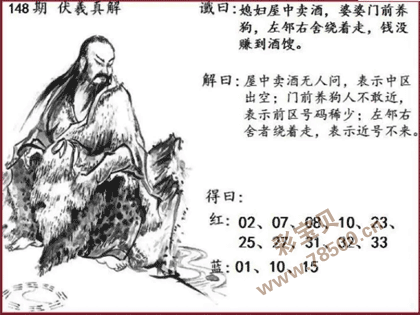 148期 伏羲真解
谶曰：媳妇屋中卖酒，婆婆门前养
狗，左邻右舍绕着走，钱没
赚到酒馊。
解曰：屋中卖酒无人问，表示中区
出空；门前养狗人不敢近，
表示前区号码稀少；左邻右
舍者绕着走，表示近号不来。
得曰：
红：02、07、08、10、23、
25、27、31、32、33
蓝：01、10、15
彩宝贝
www.78500.cn